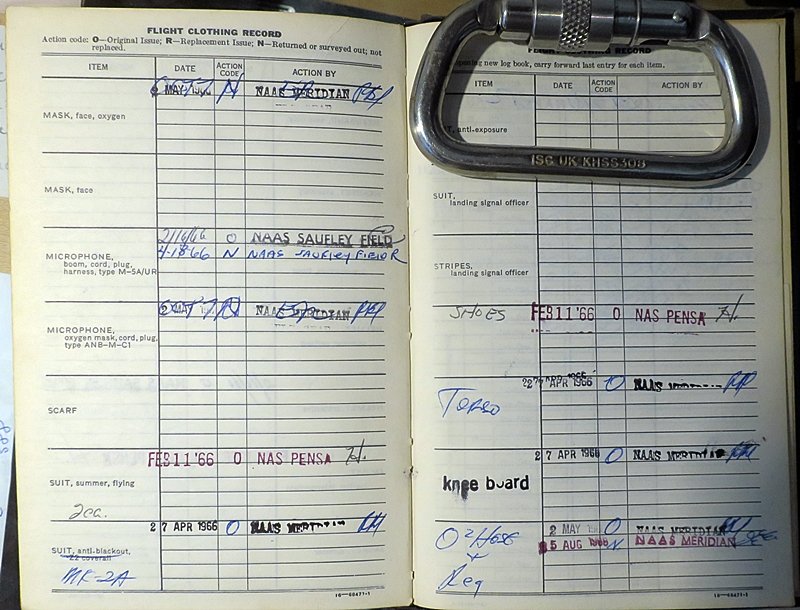 FLIGHT CLOTHING RECORD
Action code: O—Original Issue; R—Replacement Issue; N—Returned or surveyed out; not
replaced.
ITEM DATE ACTION CODE ACTION BY
MAY 1966 N NAAS MERIDIAN
MASK, face, oxygen
MASK, face
2/16/66 O NAAS SAUFLEY FIELD
4-18-66 N NAAS SAUFLEY FIELD R
MICROPHONE,
boom, cord, plug,
harness, type M-5A/UR
2 MAY NAAS MERIDIAN
MICROPHONE,
oxygen mask, cord, plug,
type ANB-M-C1
SCARF
FEB 11 '66 O NAS PENSA H.
SUIT, summer, flying
2ea.
27 APR 1966 O NAAS MERIDIAN
SUIT, anti-blackout,
Z2 coverall
MK-2A
16—68471-1
FLIGHT CLOTHING RECORD
opening new log book, carry forward last entry for each item.
ITEM DATE ACTION CODE ACTION BY
anti-exposure
ISC UK KHSS308
SUIT,
landing signal officer
STRIPES,
landing signal officer
SHOES FEB 11 '66 O NAS PENSA H.
27 APR 1966 O NAAS
Torso
27 APR 1966 O NAAS MERIDIAN
knee board
2 MAY O NAAS MERIDIAN
O2 Hose 25 AUG 1966 N NAAS MERIDIAN
+
Reg
16—68471-1